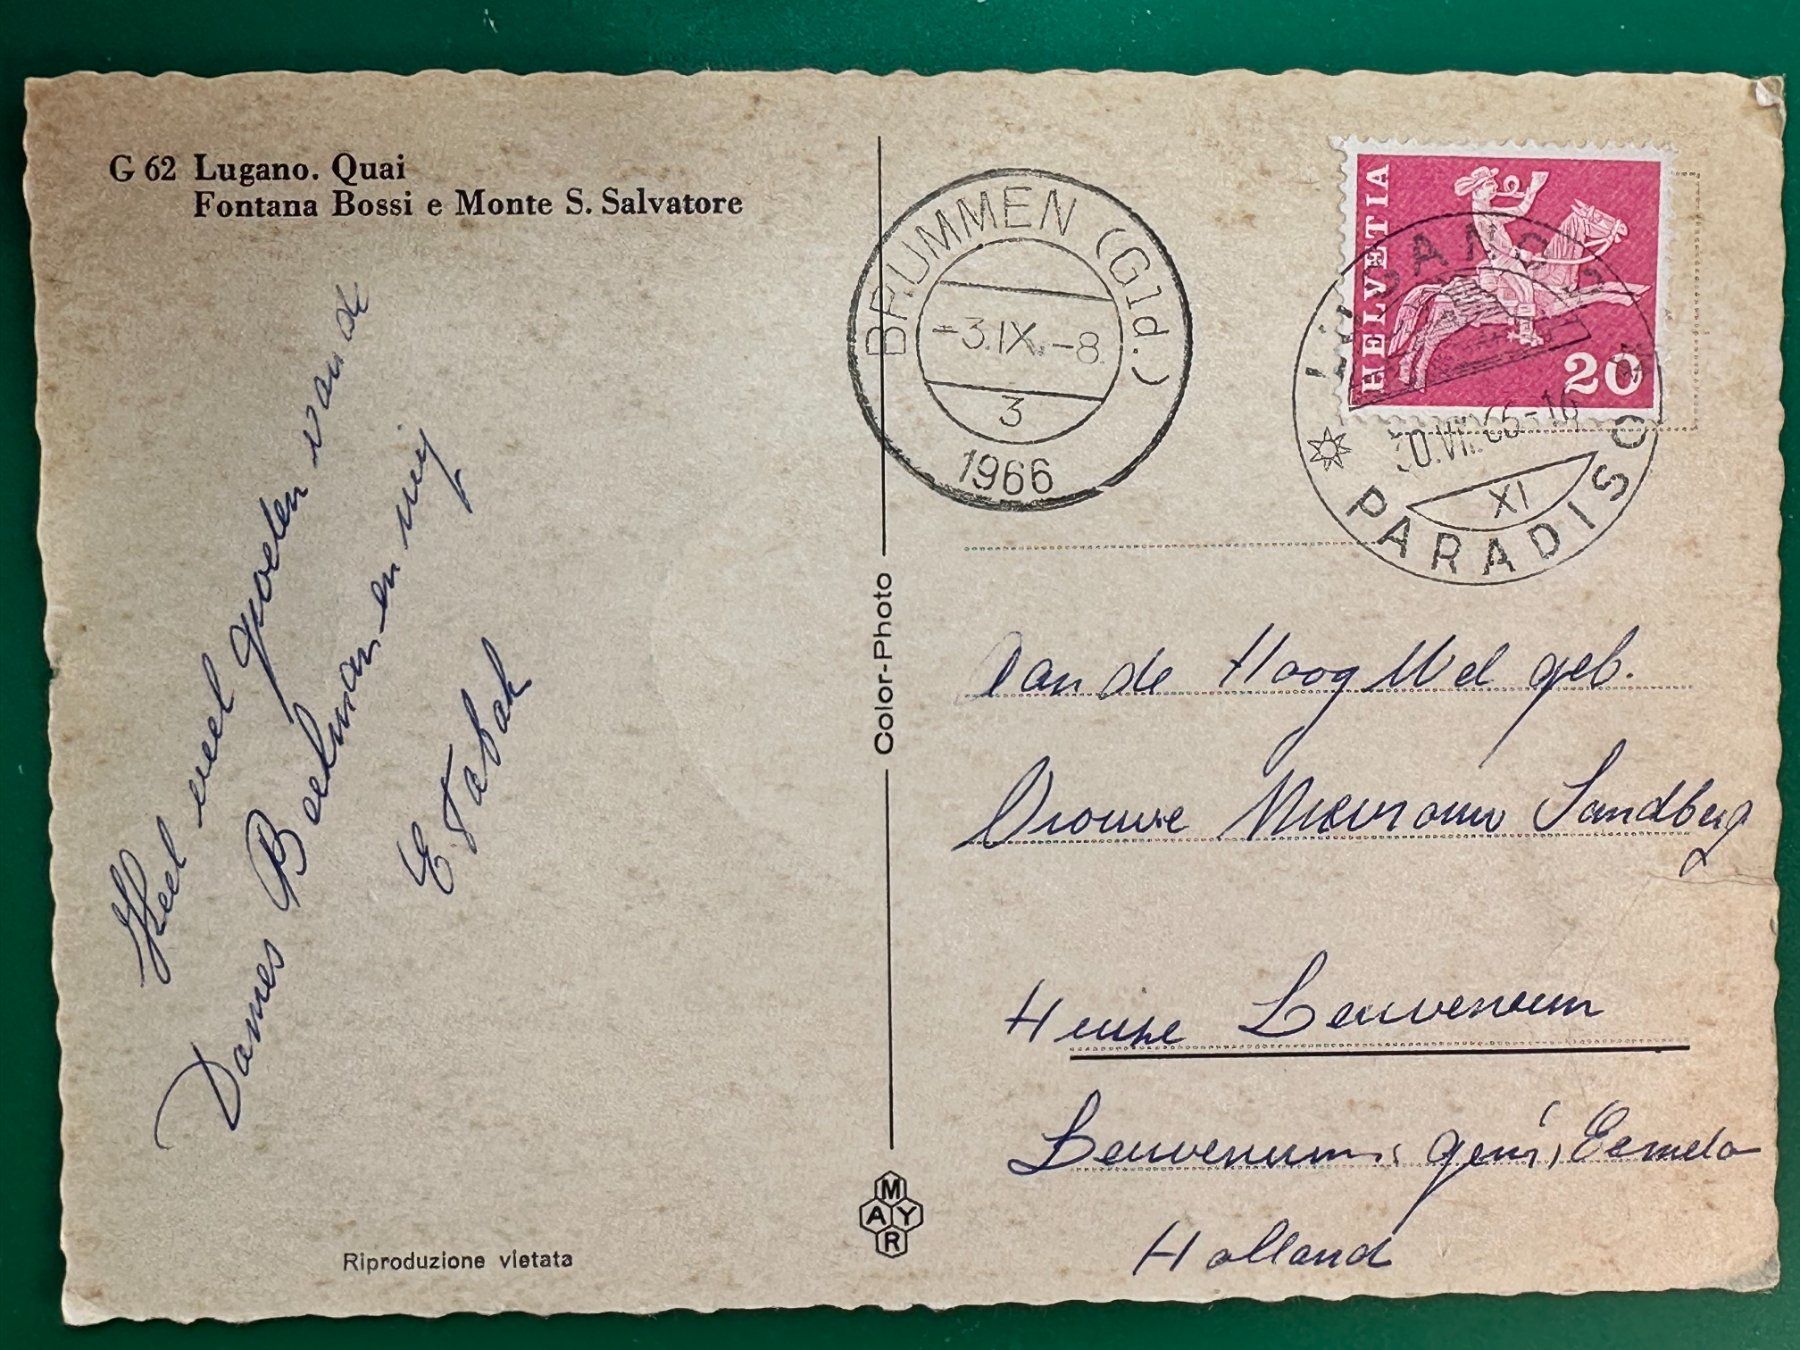 G 62 Lugano. Quai
Fontana Bossi e Monte S. Salvatore
Heel veel groeten van de
Dames Boelman en mij
E.
Riproduzione vietata
Color-Photo
MAYR
BRUMMEN (Gld.)
-3.IX.-8.
3
1966
HELVETIA
20
LUGANO
66-16
XI
PARADISO
Aan de Hoog Wel geb.
Vrouwe Sandberg
Huize Leuvenum
Leuvenum, gem, Ermelo
Holland